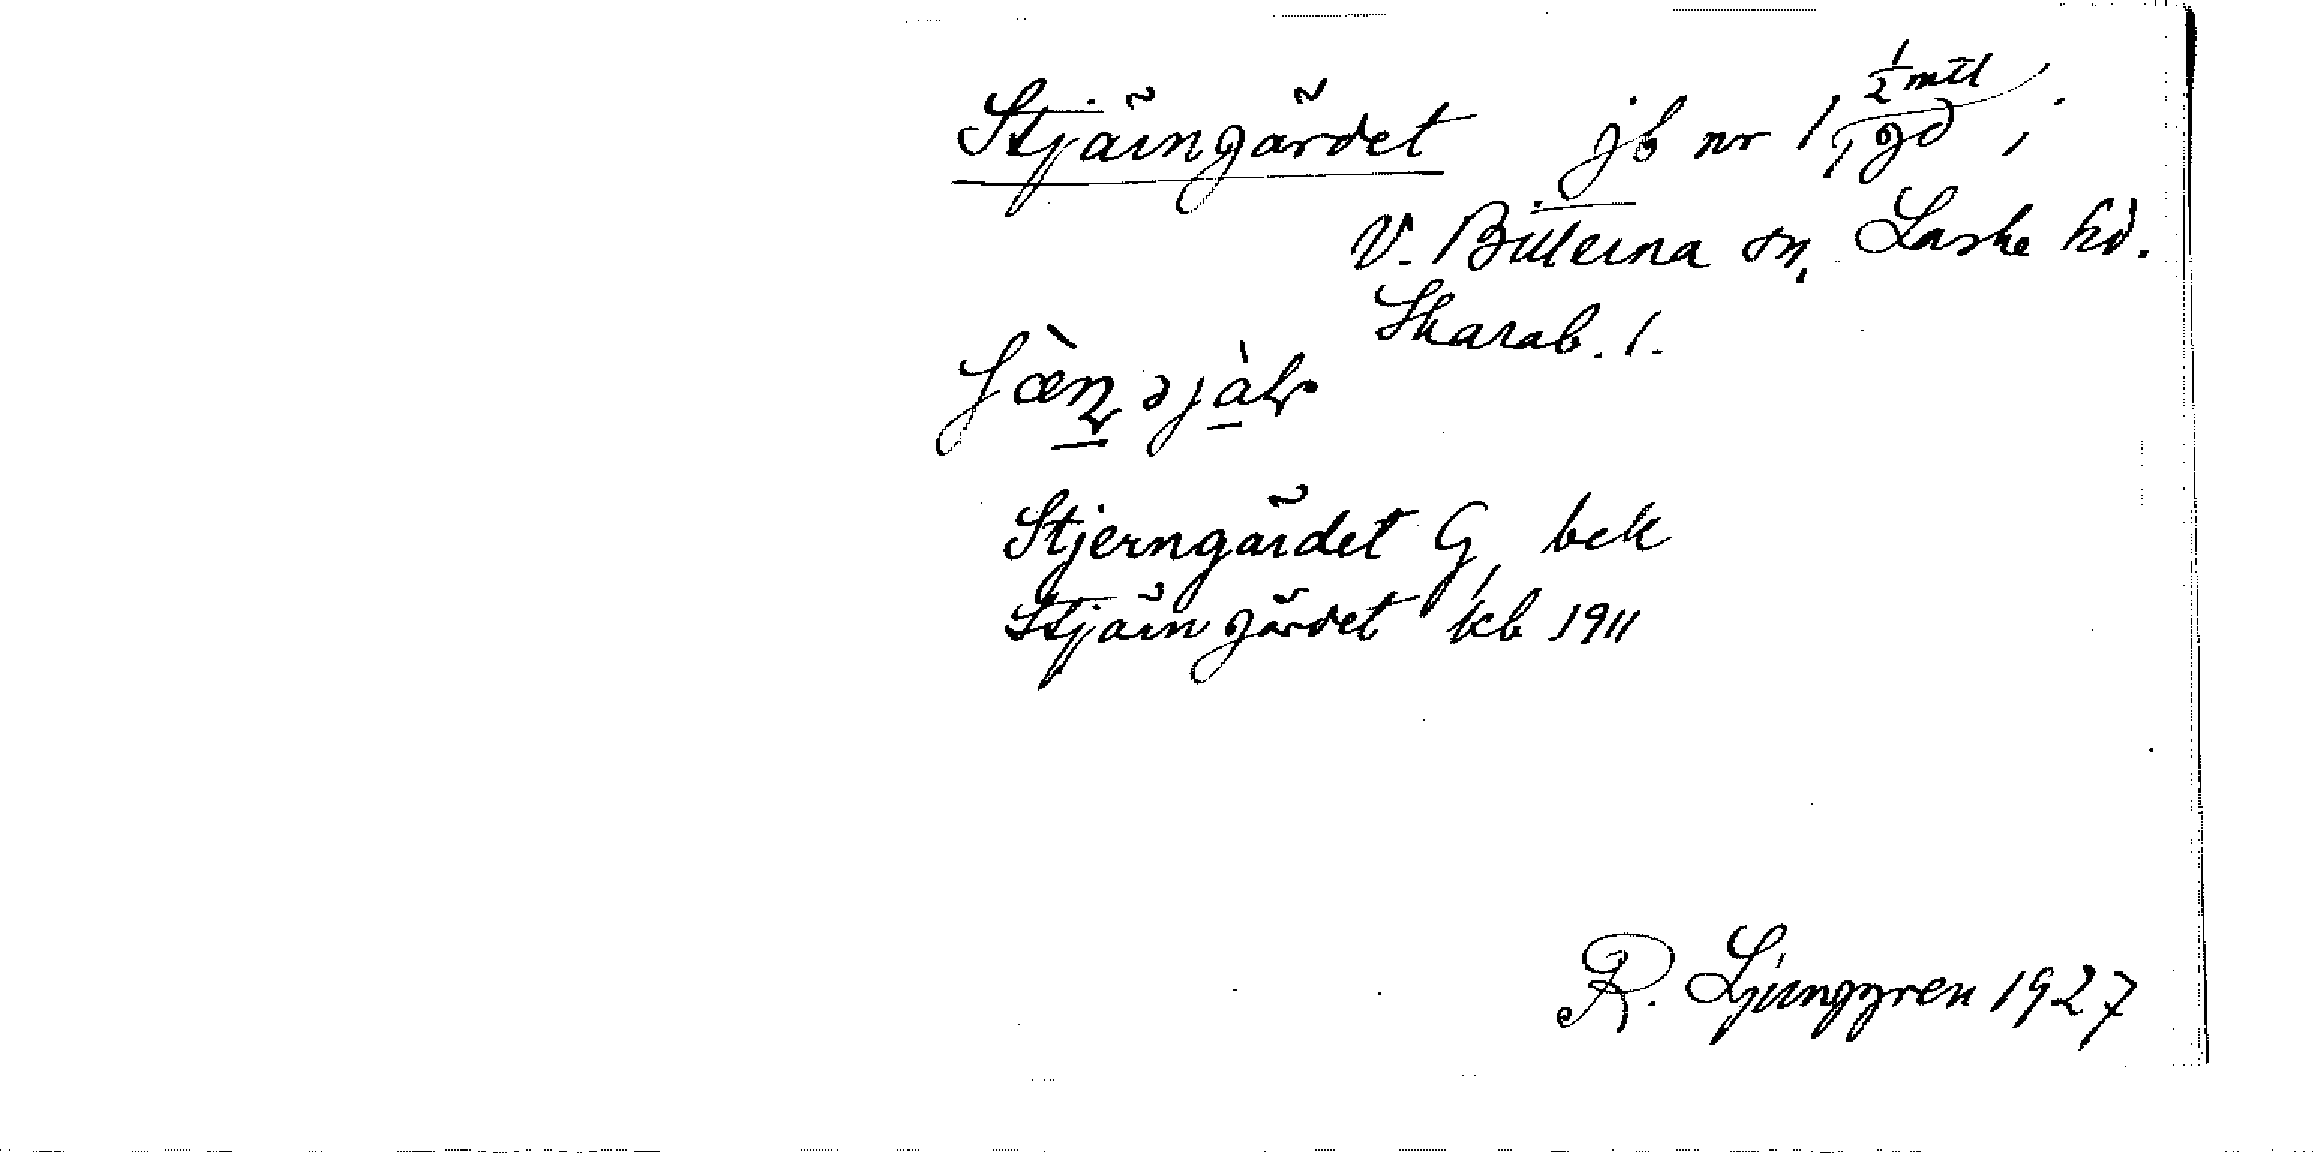 Stjärngärdet jb nr 1 ½ mtl / 1 gd,
V. Bitterna sn, Laske hd.
Skarab. l.
Stjerngärdet G bek
Stjärngärdet kb 1911
R. Ljunggren 1927